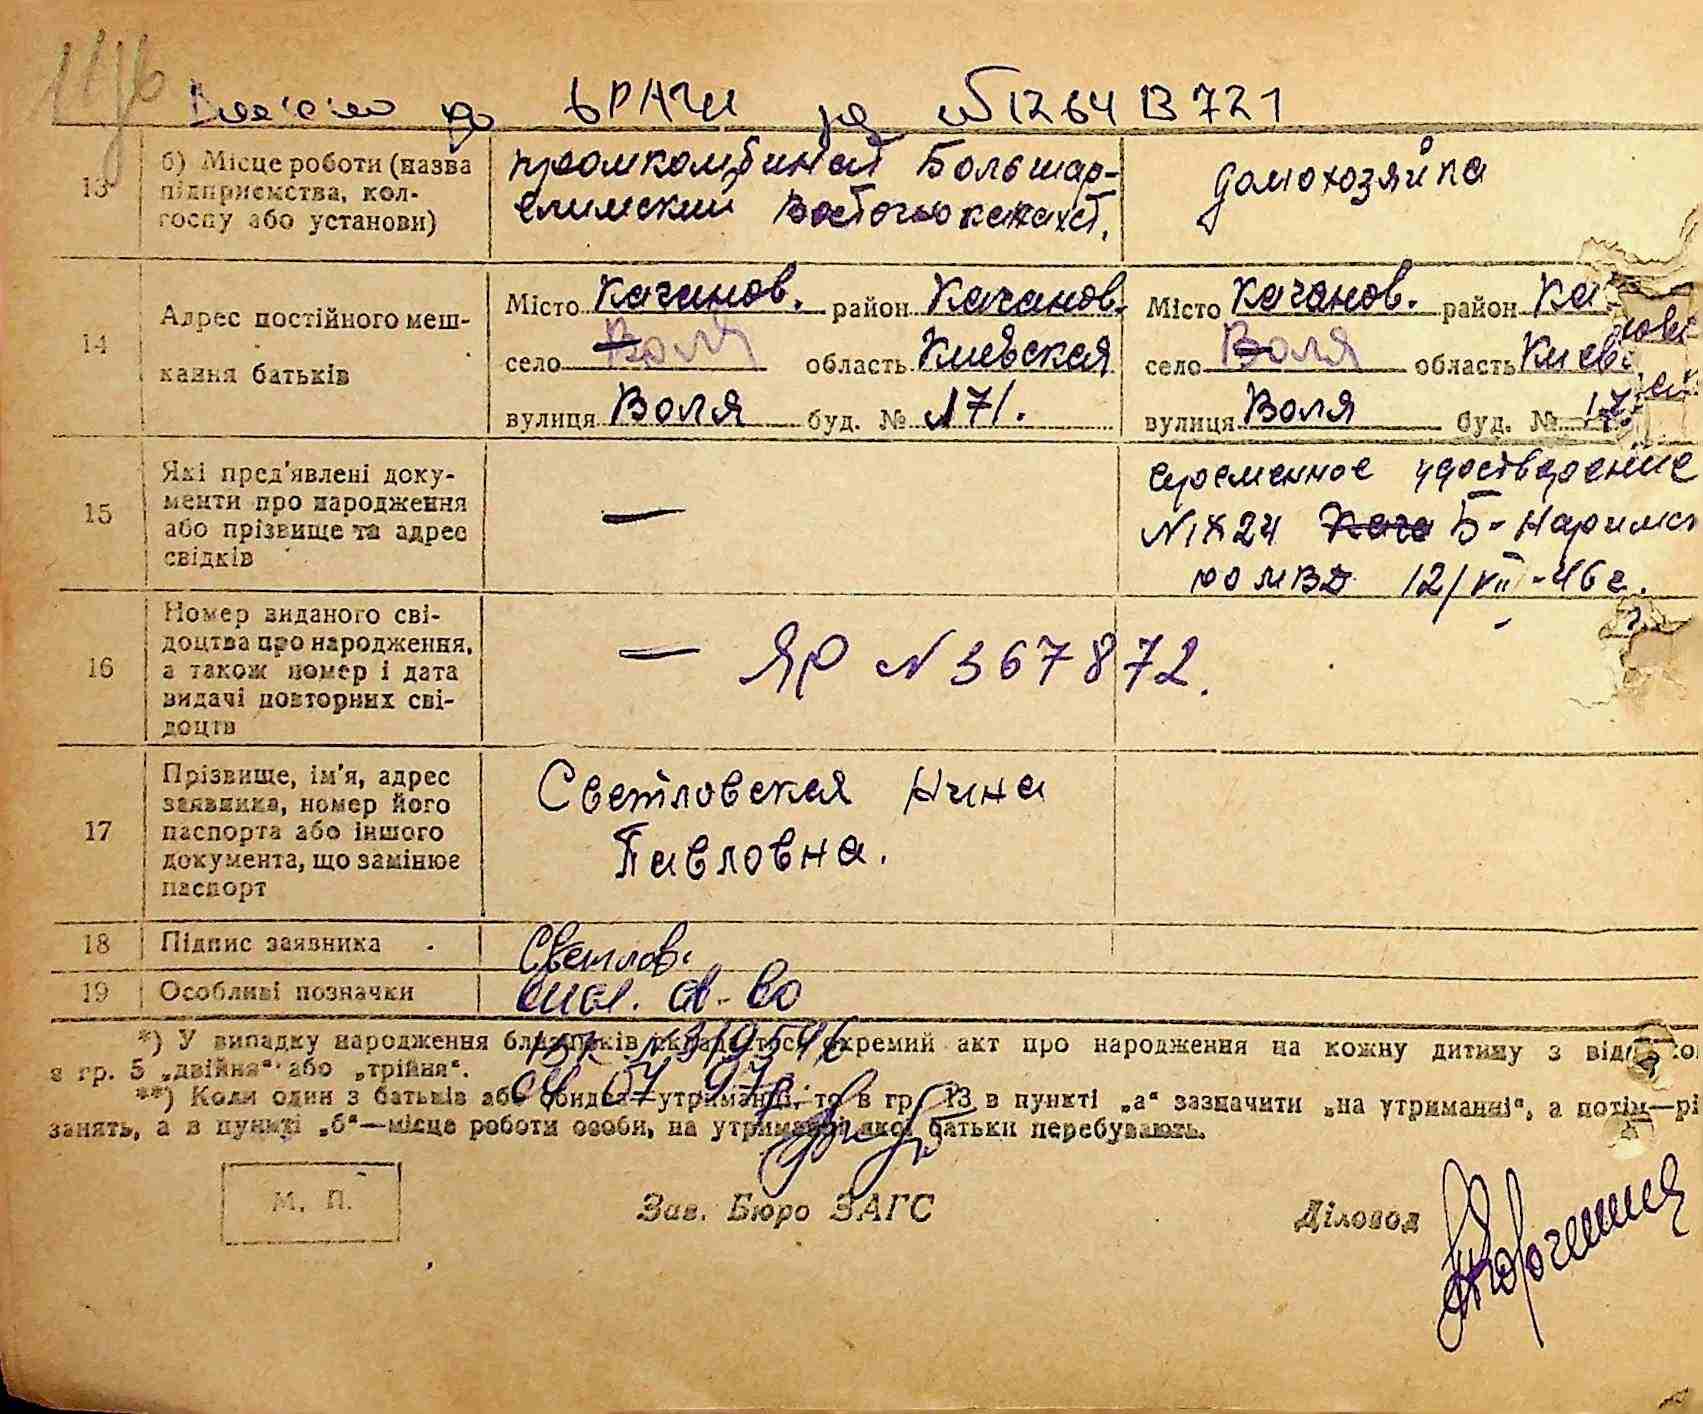 Внесено до ДРАЦС за №1264 В 721
13 б) Місце роботи (назва підприємства, колгоспу або установи)
промкомбинат Большар-
Восточноказахст.
домохозяйка
14 Адрес постійного мешкання батьків
Місто Каганов. район Каганов. Місто Каганов. район Ка
село Воля область Киевская село Воля область Киев
вулиця Воля буд. № 171. вулиця Воля буд. № 17
15 Які пред'явлені документи про народження або прізвище та адрес свідків
—
временное удостверение
Б-Наримс
РО МВД 12/VII-46 г.
16 Номер виданого свідоцтва про народження, а також номер і дата видачі повторних свідоцтв
— ЯР N 367872.
17 Прізвище, ім'я, адрес заявника, номер його паспорта або іншого документа, що замінює паспорт
Светловская Нина
Павловна.
18 Підпис заявника
Светлов.
19 Особливі позначки
*) У випадку народження близнюків складається окремий акт про народження на кожну дитину з
в гр. 5 „двійня" або „трійня".
**) Коли один з батьків або обидва—утриманці, то в гр. 13 в пункті „а" зазначити „на утриманні", а потім—рі
занять, а в пункті „б"—місце роботи особи, на утриманні якої батьки перебувають.
М. П.
Зав. Бюро ЗАГС
Діловод